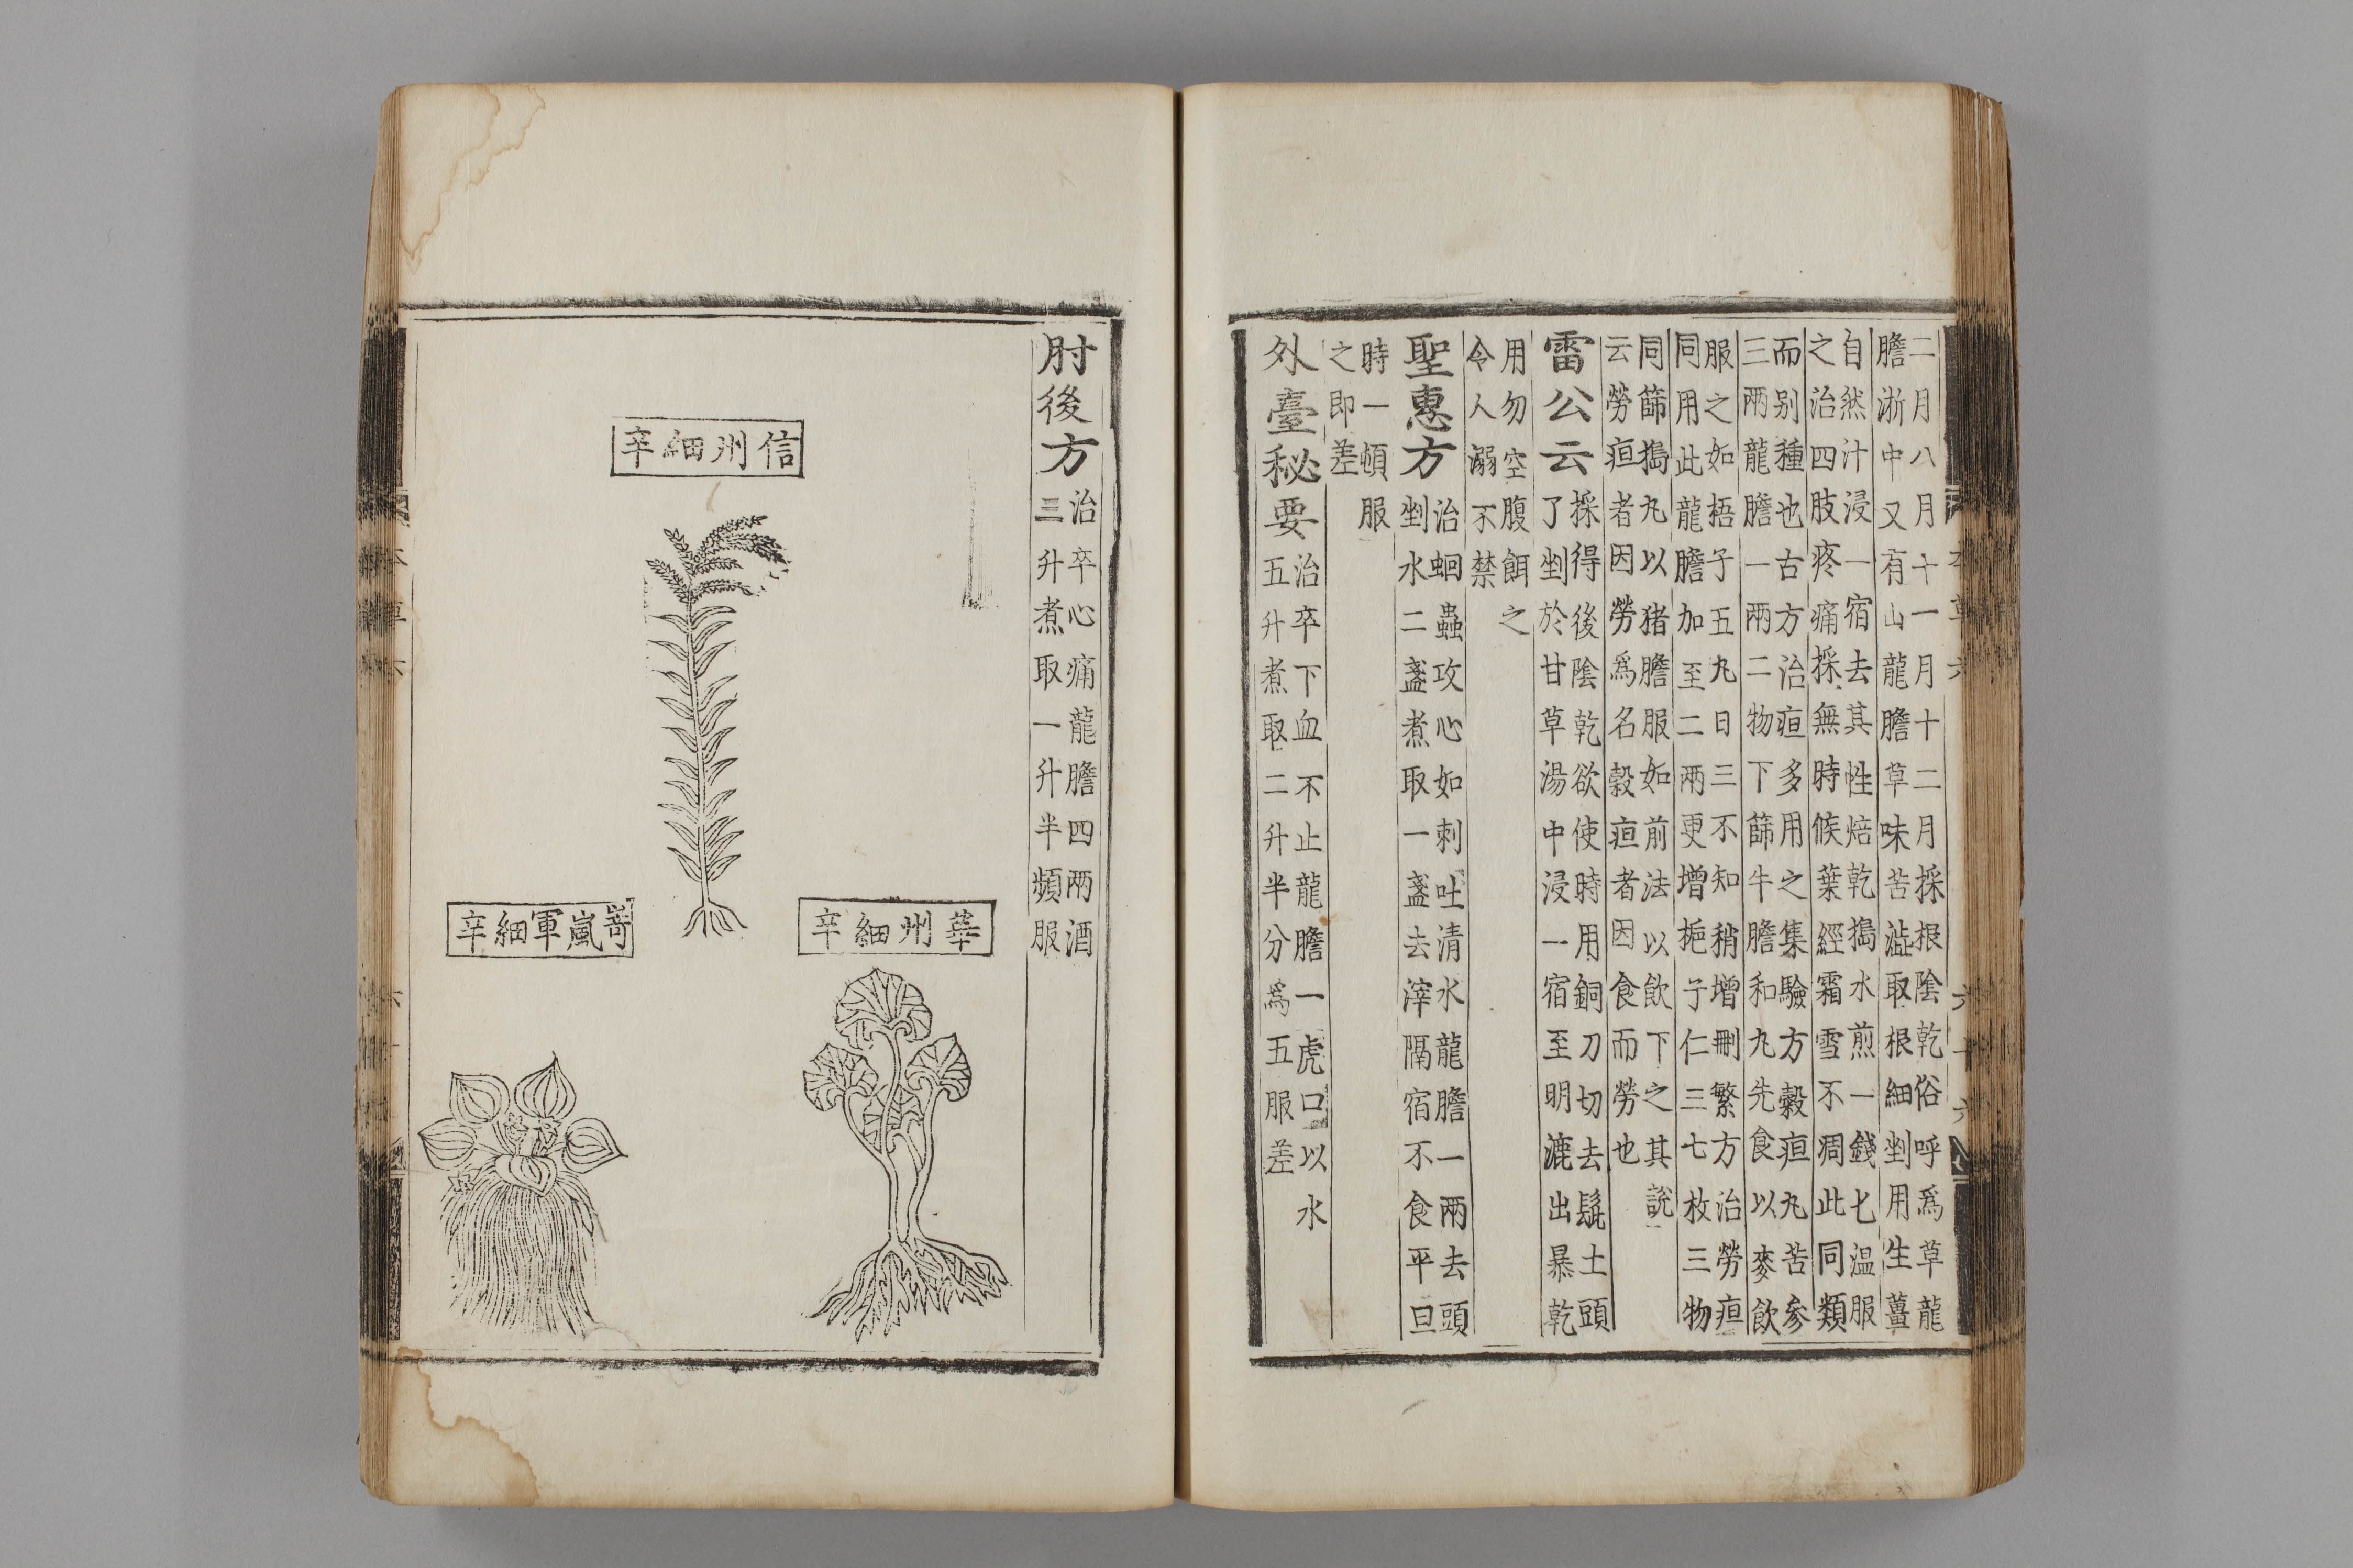 二月八月十一月十二月採根陰乾俗呼爲草龍
膽浙中又有山龍膽草味苦澁取根細剉用生薑
自然汁浸一宿去其性焙乾搗水煎一錢匕温服
之治四肢疼痛採無時候葉經霜雪不凋此同類
而别種也古方治疸多用之集驗方穀疸丸苦参
三兩龍膽一兩二物下篩牛膽和丸先食以麥飲
服之如梧子五丸日三不知稍增刪繁方治勞疸
同用此龍膽加至二兩更增梔子仁三七枚三物
同篩搗丸以猪膽服如前法以飲下之其說
云勞疸者因勞爲名穀疸者因食而勞也
雷公云
採得後陰乾欲使時用銅刀切去髭土頭
了剉於甘草湯中浸一宿至明漉出暴乾
用勿空腹餌之
令人溺不禁
聖惠方
治蛔蟲攻心如刺吐清水龍膽一兩去頭
剉水二盞煮取一盞去滓隔宿不食平旦
時一頓服
之即差
外臺秘要
治卒下血不止龍膽一虎口以水
五升煮取二升半分爲五服差
肘後方
治卒心痛龍膽四兩酒
三升煮取一升半頻服
信州細辛
華州細辛
岢嵐軍細辛